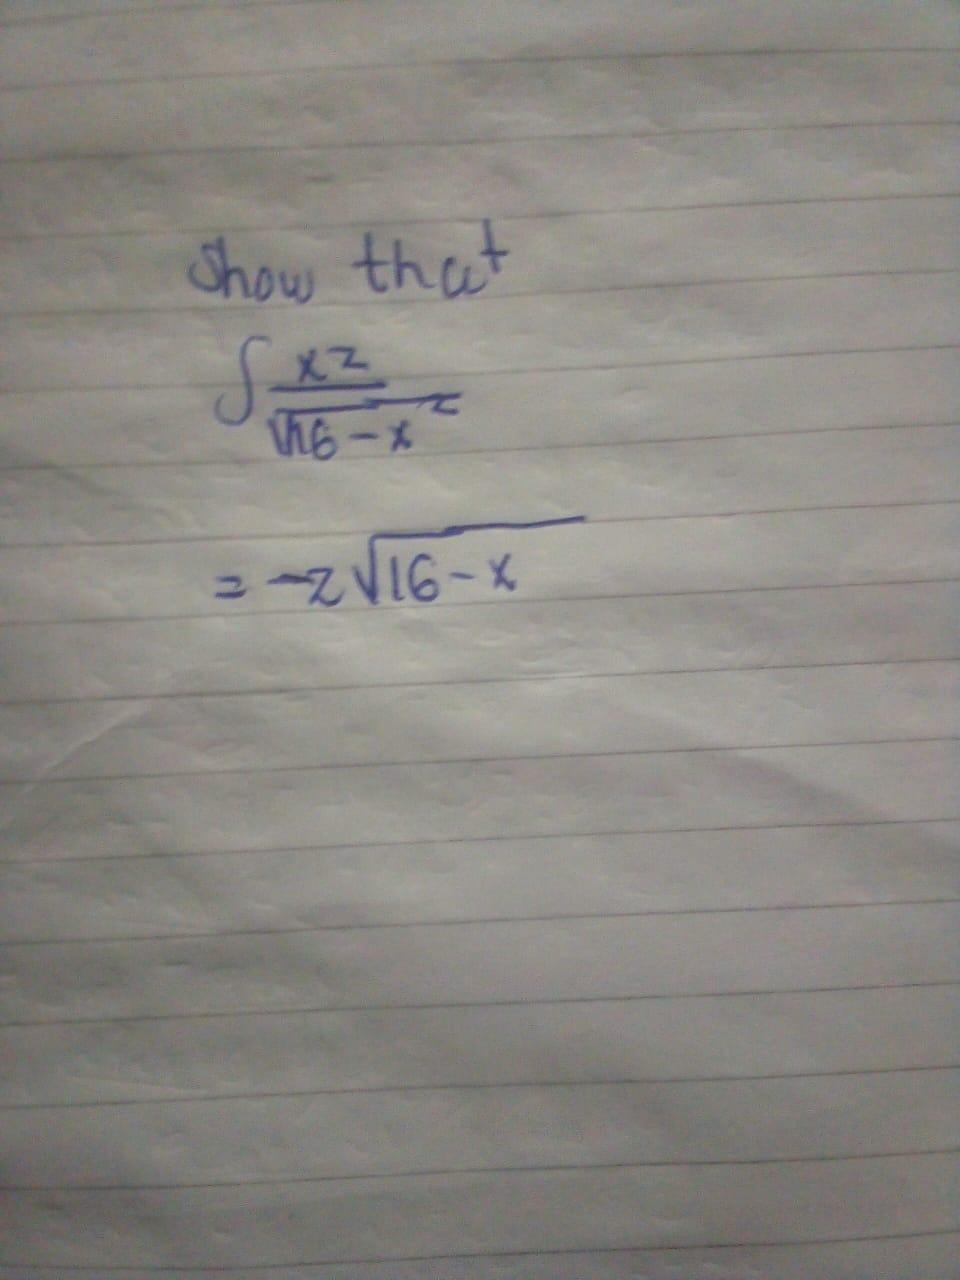 Show that
∫ xz
√16 - x²
= -z √16 - x